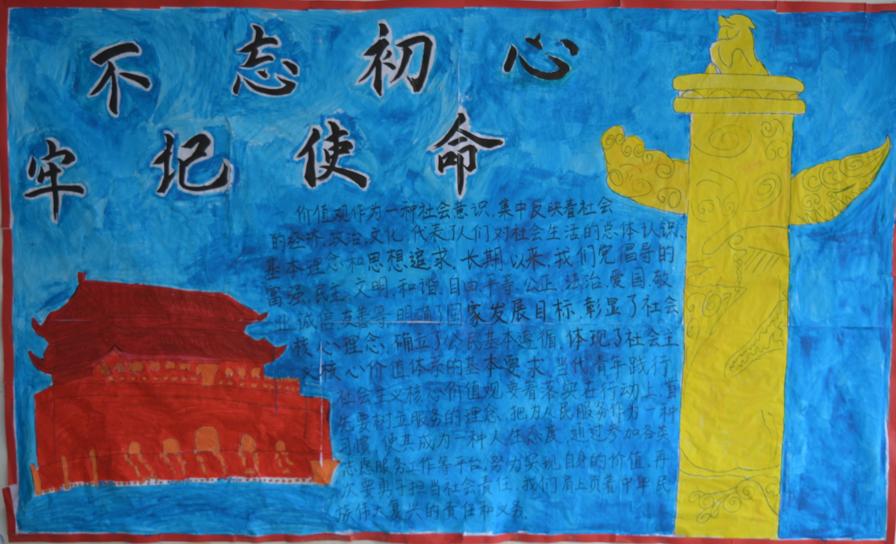 不忘初心
牢记使命
价值观作为一种社会意识,集中反映着社会
的经济、政治、文化,代表了人们对社会生活的总体认识、
基本理念和思想追求。长期以来,我们党倡导的
富强、民主、文明、和谐、自由、平等、公正、法治、爱国、敬
业、诚信、友善等,明确了国家发展目标,彰显了社会
核心理念,确立了人民基本遵循,体现了社会主
义核心价值体系的基本要求。当代青年践行
社会主义核心价值观要着落实在行动上,首
先要树立服务的理念,把为人民服务作为一种
习惯,使其成为一种人生态度,通过参加各类
志愿服务工作等平台,努力实现自身的价值,再
次要勇于担当社会责任,我们肩上负着中华民
族伟大复兴的责任和义务。